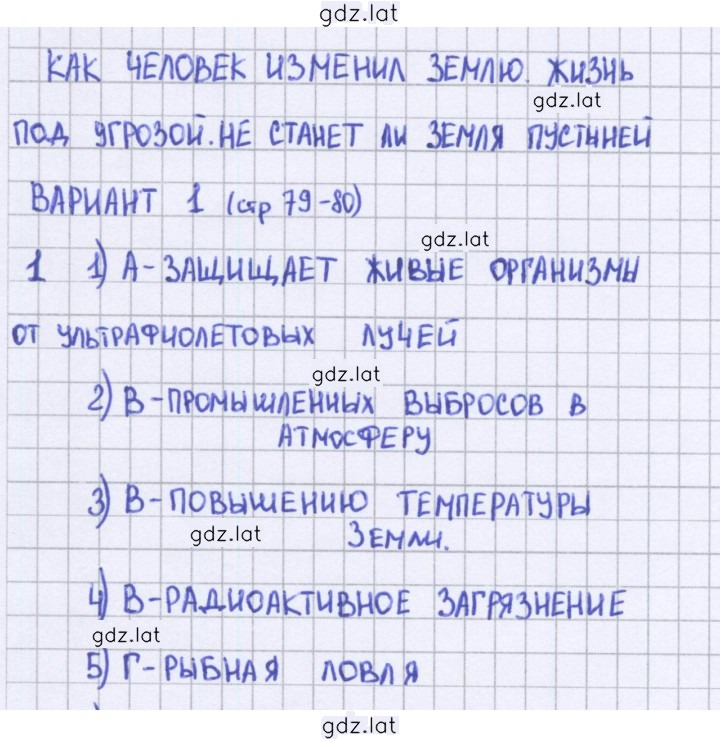 gdz.lat
КАК ЧЕЛОВЕК ИЗМЕНИЛ ЗЕМЛЮ. ЖИЗНЬ
gdz.lat
ПОД УГРОЗОЙ. НЕ СТАНЕТ ЛИ ЗЕМЛЯ ПУСТЫНЕЙ
ВАРИАНТ 1 (стр 79-80)
gdz.lat
1 1) А-ЗАЩИЩАЕТ ЖИВЫЕ ОРГАНИЗМЫ
ОТ УЛЬТРАФИОЛЕТОВЫХ ЛУЧЕЙ
gdz.lat
2) В-ПРОМЫШЛЕННЫХ ВЫБРОСОВ В
АТМОСФЕРУ
3) В-ПОВЫШЕНИЮ ТЕМПЕРАТУРЫ
gdz.lat
ЗЕМЛИ.
4) В-РАДИОАКТИВНОЕ ЗАГРЯЗНЕНИЕ
gdz.lat
5) Г-РЫБНАЯ ЛОВЛЯ
gdz.lat